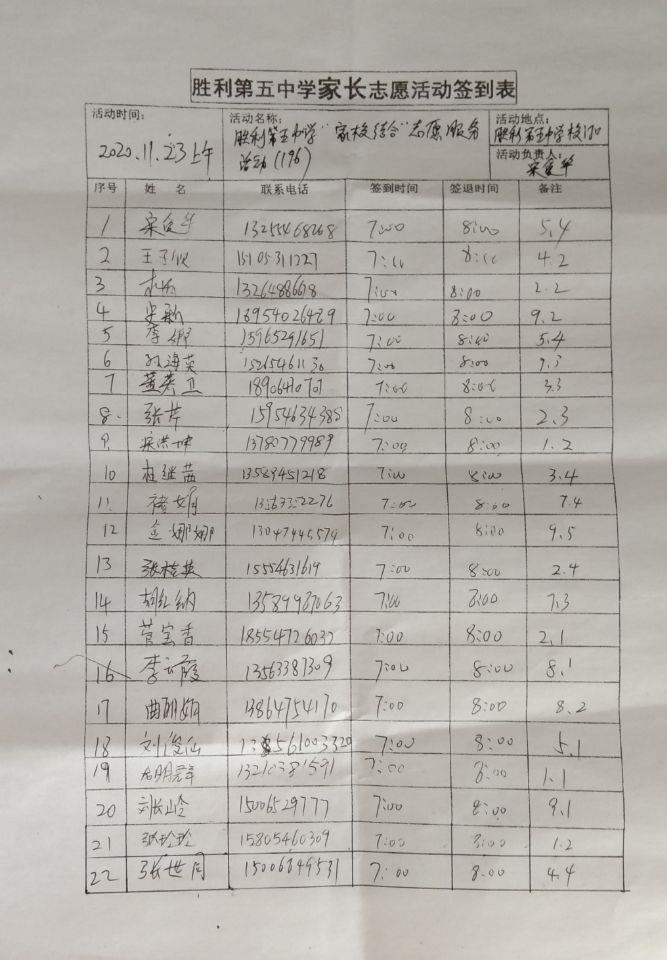 胜利第五中学家长志愿活动签到表
活动时间: 2020.11.23上午
活动名称: 胜利第五中学"家校结合"志愿服务
活动(196)
活动地点: 胜利第五中学校门口
活动负责人:
序号 姓 名 联系电话 签到时间 签退时间 备注
1 13255468268 7:00 8:00 5.4
2 15105311227 7:00 8:00 4.2
3 7:00 8:00 2.2
4 13954026489 7:00 8:00 9.2
5 李娜 15965291651 7:00 8:00 5.4
6 孙海英 7:00 8:00 9.3
7 7:00 8:00 3.3
8 张芹 15954634388 7:00 8:00 2.3
9 13780779989 7:00 8:00 1.2
10 杜继茜 13589451218 7:00 8:00 3.4
11 褚娟 13563352276 7:00 8:00 7.4
12 金娜娜 13047445574 7:00 8:00 9.5
13 张桂英 15554631619 7:00 8:00 2.4
14 胡红纳 13589987063 7:00 8:00 7.3
15 菅宝香 18554726032 7:00 8:00 2.1
16 李云霞 13563387309 7:00 8:00 8.1
17 曲丽娟 13864754170 7:00 8:00 8.2
18 刘俊仙 7:00 8:00 5.1
19 13210381591 7:00 8:00 1.1
20 刘长山 15006529777 7:00 8:00 9.1
21 张玲玲 15805460309 7:00 8:00 1.2
22 张世同 15006849531 7:00 8:00 4.4